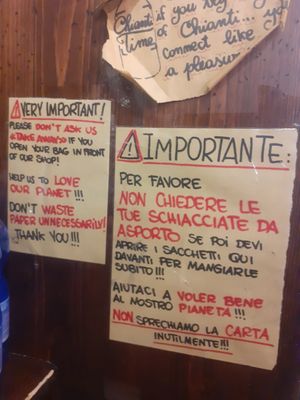 Chianti if you
time of Chianti... yo
connect like
a pleasur
VERY IMPORTANT!
PLEASE DON'T ASK US
«TAKE AWAY» IF YOU
OPEN YOUR BAG IN FRONT
OF OUR SHOP!
HELP US TO LOVE
OUR PLANET!!!
DON'T WASTE
PAPER UNNECESSARILY!
THANK YOU!!!
IMPORTANTE:
PER FAVORE
NON CHIEDERE LE
TUE SCHIACCIATE DA
ASPORTO SE POI DEVI
APRIRE I SACCHETTI QUI
DAVANTI PER MANGIARLE
SUBITO!!!
AIUTACI A VOLER BENE
AL NOSTRO PIANETA!!!
NON SPRECHIAMO LA CARTA
INUTILMENTE!!!